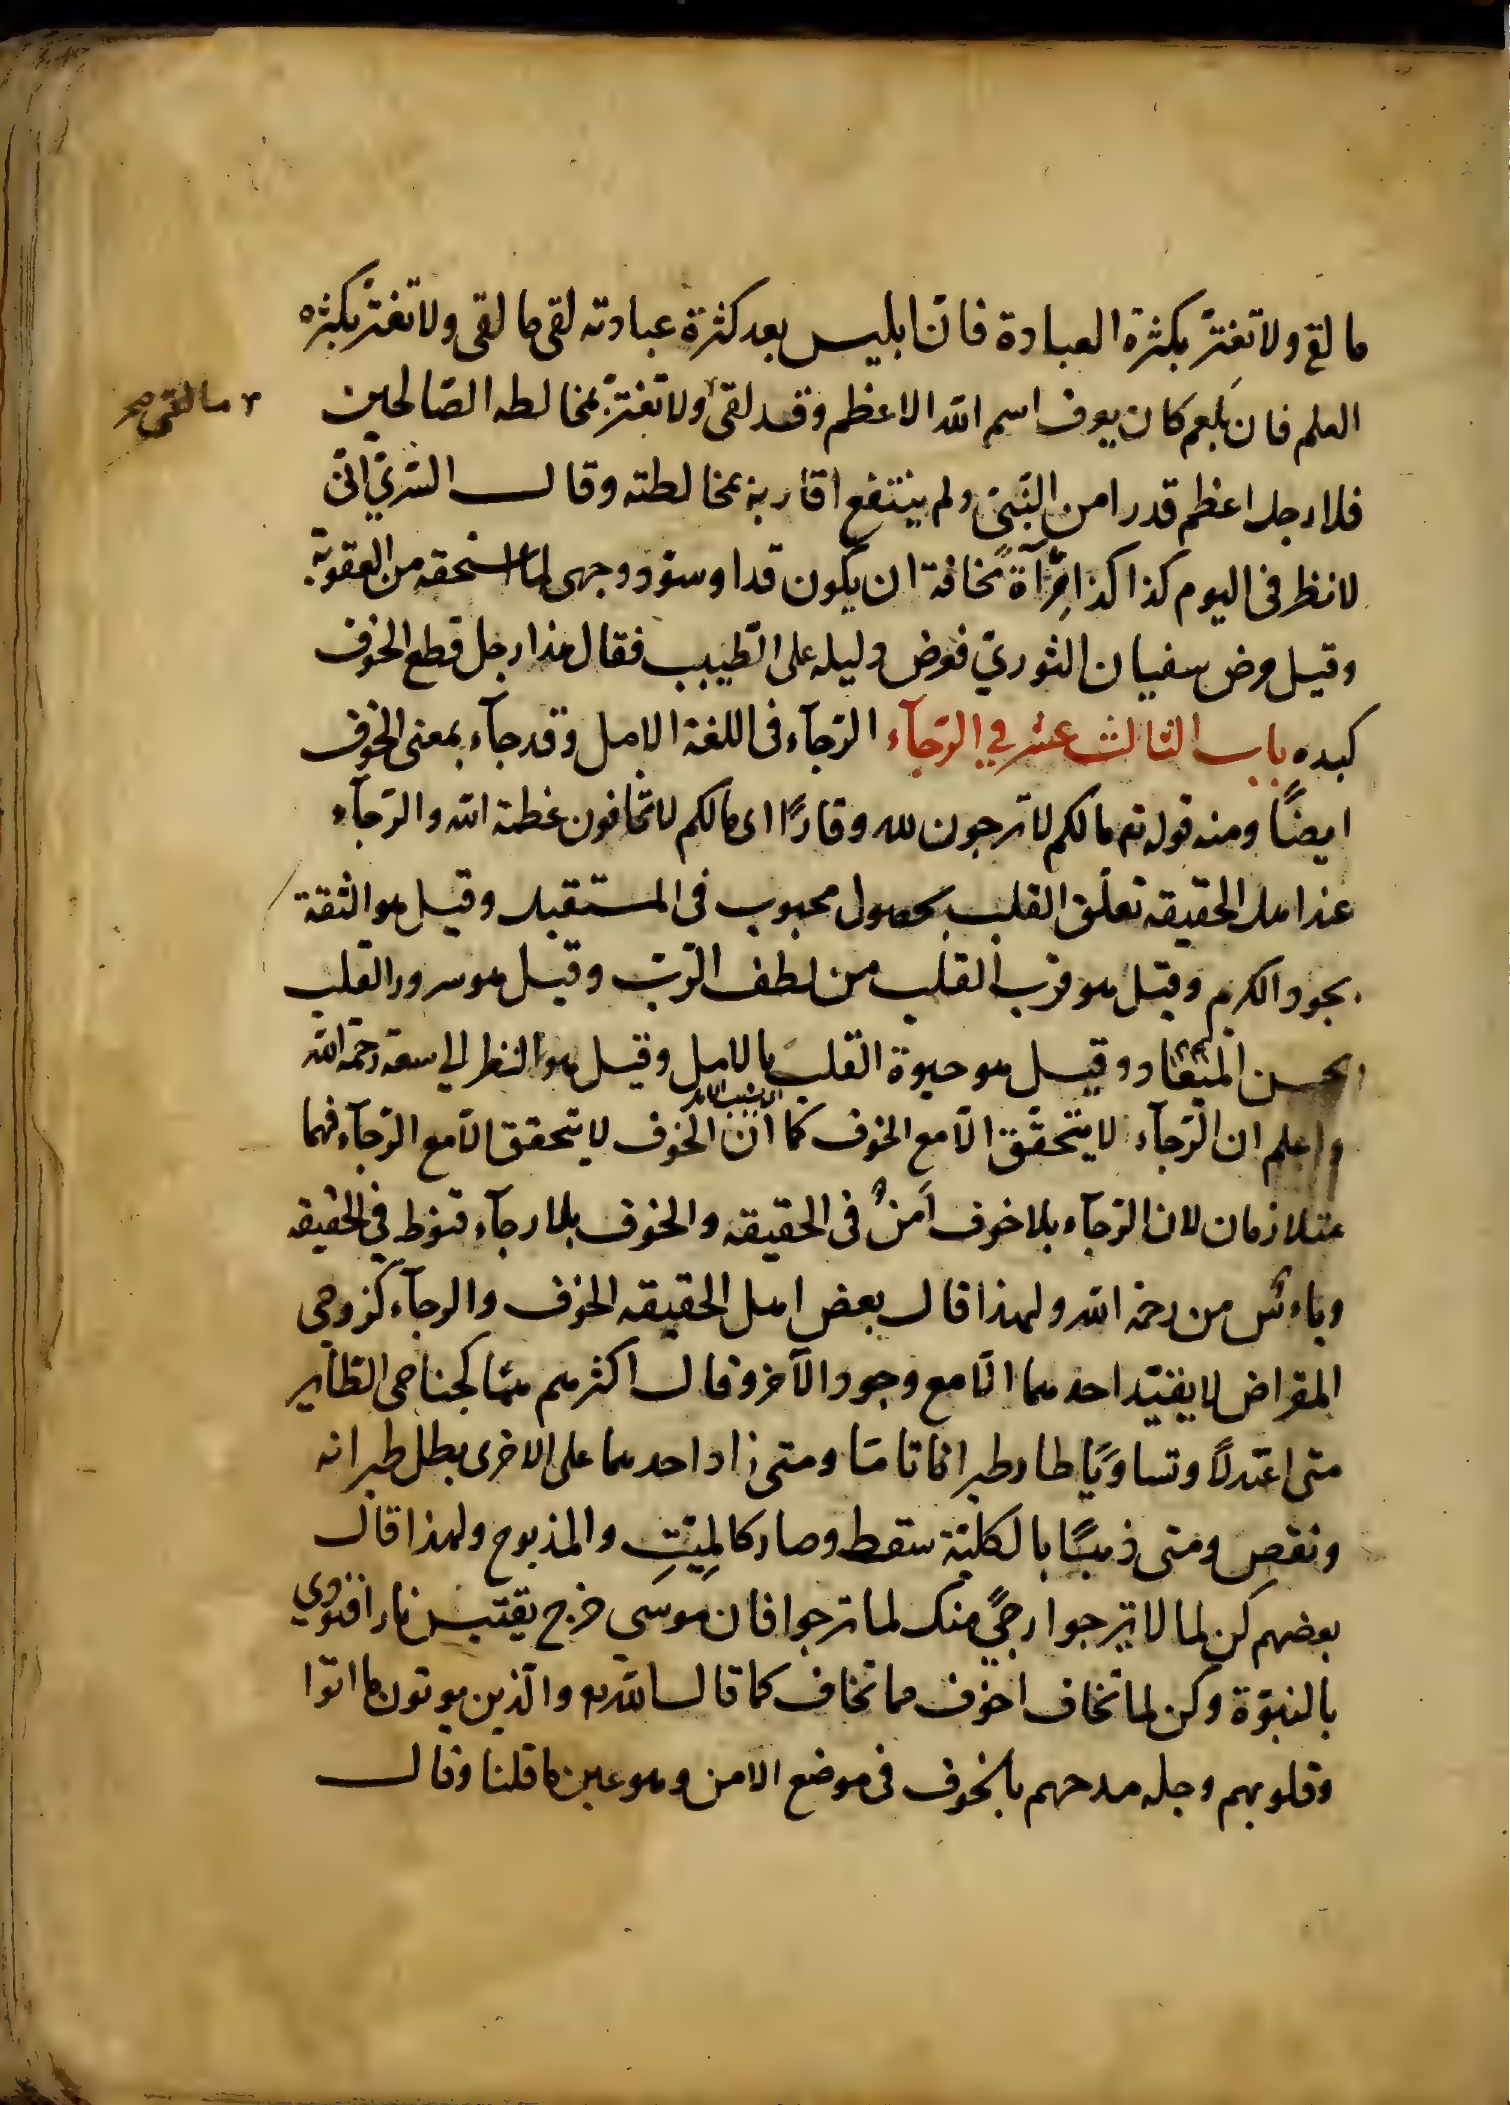 ما لقى ولا تغترّ بكثرة العبادة فانّ ابليس بعد كثرة عبادته لقى ما لقى ولا تغترّ بكثرة
العلم فان بَلعم كان يعرف اسم الله الاعظم وقد لقى ولا تغترّ بمخالطه الصّالحين
ما لقى صح
فلا رجل اعظم قدرا من النّبىّ ولم ينتفع اقاربه بمخالطته وقال السّريّ انّى
لانظر فى اليوم كذا كذا مِرْآة مخافة ان يكون قد اسودّ وجهى لما استحقه من العقوبة
وقيل مرض سفيان الثوريّ فعرض دليله على الطّبيب فقال هذا رجل قطع الخوف
كبده باب الثالث عشر في الرّجآء الرّجآء فى اللغة الامل وقد جآء بمعنى الخوف
ايضًا ومنه قوله تع مالكم لا ترجون لله وقارًا اى مالكم لا تخافون عظمة الله والرّجآء
عند اهل الحقيقه تعلّق القلب بحصول محبوب فى المستقبل وقيل هو الثقة
بجود الكرم وقيل هو قرب القلب من لطف الرّبّ وقيل هو سرور القلب
بحسن المعاد وقيل هو حيوة القلب بالامل وقيل هو النظر الى سعة رحمة الله
واعلم ان الرّجآء لا يتحقّق الّا مع الخوف كما انّ الخوف لا يتحقق الّا مع الرّجآء فهما
متلازمان لان الرّجآء بلا خوف اَمنٌ فى الحقيقه والخوف بلا رجآء قنوط في الحقيقه
وياءس من رحمة الله ولهذا قال بعض اهل الحقيقه الخوف والرجآء كزوجى
المقراض لا يفيد احدهما الّا مع وجود الآخر وقال اكثرهم هما كجناحى الطّآير
متى اعتدلاً وتساوَيَا طار طيرانا تامّا ومتى زاد احدهما على الاخرى بطل طيرانه
ونقص ومتى ذهبَا بالكليّة سقط وصار كالميّتِ والمذبوح ولهذا قال
بعضهم كن لما لا ترجوا رجىً منك لما ترجوا فان موسى خرج يقتبس نارا فنودي
بالنبوّة وكن لما تخاف اخوف مما تخاف كما قال الله تع والّذين يوتون ما اتوا
وقلوبهم وجله مدحهم بالخوف فى موضع الامن وهو عين ما قلنا وقال